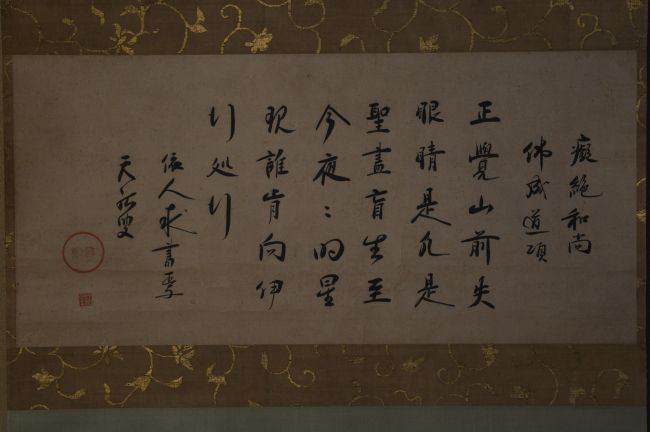 癡絶和尚
佛成道頌
正覺山前失
眼睛是凡是
聖盡盲生至
今夜〻明星
現誰肯向伊
行処行
依人求書
天祐叟